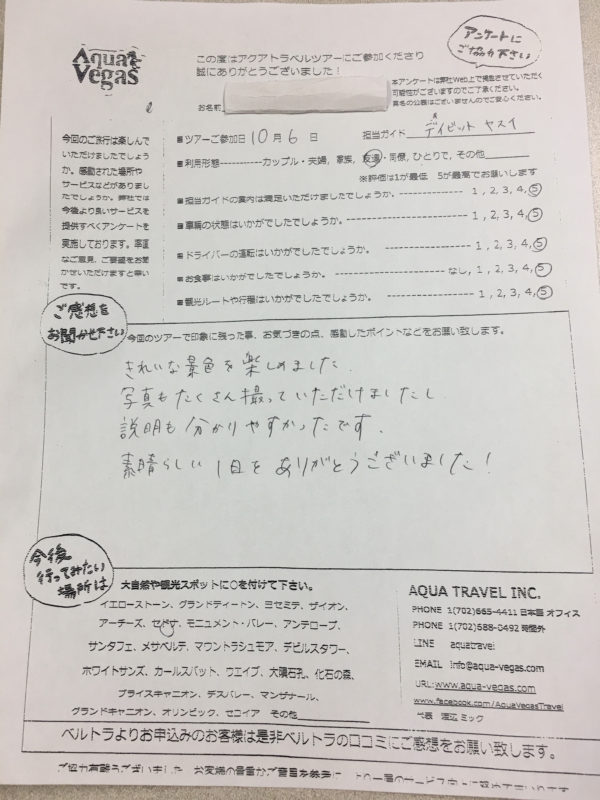 Aqua
Vegas
この度はアクアトラベルツアーにご参加くださり
誠にありがとうございました！
アンケートに
ご協力下さい
本アンケートは弊社Web上で掲載させていただく
可能性がございますのでご了承ください。
真名の公表はございませんのでご安心ください。
お名前
今回のご旅行は楽しんで
いただけましたでしょう
か。感動された場所や
サービスなどがありまし
たでしょうか。弊社では
今後より良いサービスを
提供すべくアンケートを
実施しております。率直
なご意見、ご要望をお聞
かせいただけますと幸い
です。
■ツアーご参加日 10 月 6 日 担当ガイド デイビット ヤスイ
■利用形態-----------カップル・夫婦, 家族, 友達・同僚, ひとりで, その他
※評価は1が最低 5が最高でお願いします
■担当ガイドの案内は満足いただけましたでしょうか。 ---------------- 1, 2, 3, 4, 5
■車輌の状態はいかがでしたでしょうか。 ---------------- 1, 2, 3, 4, 5
■ドライバーの運転はいかがでしたでしょうか。 ---------------- 1, 2, 3, 4, 5
■お食事はいかがでしたでしょうか。 ---------------- なし, 1, 2, 3, 4, 5
■観光ルートや行程はいかがでしたでしょうか。 ---------------- 1, 2, 3, 4, 5
ご感想を
お聞かせ下さい
今回のツアーで印象に残った事、お気づきの点、感動したポイントなどをお願い致します。
きれいな景色を楽しめました.
写真もたくさん撮っていただけましたし
説明も分かりやすかったです.
素晴らしい1日をありがとうございました！
今後
行ってみたい
場所は
大自然や観光スポットに○を付けて下さい。
イエローストーン、グランドティートン、ヨセミテ、ザイオン、
アーチーズ、セドナ、モニュメント・バレー、アンテロープ、
サンタフェ、メサベルデ、マウントラシュモア、デビルスタワー、
ホワイトサンズ、カールスバット、ウエイブ、大隕石孔、化石の森、
ブライスキャニオン、デスバレー、マンザナール、
グランドキャニオン、オリンピック、セコイア その他
AQUA TRAVEL INC.
PHONE 1(702)665-4411 日本語 オフィス
PHONE 1(702)588-0492 時間外
LINE aquatravel
EMAIL info@aqua-vegas.com
URL:www.aqua-vegas.com
www.facebook.com/AquaVegasTravel
代表 渡辺 ミック
ベルトラよりお申込みのお客様は是非ベルトラの口コミにご感想をお願い致します。
ご協力有難うございました